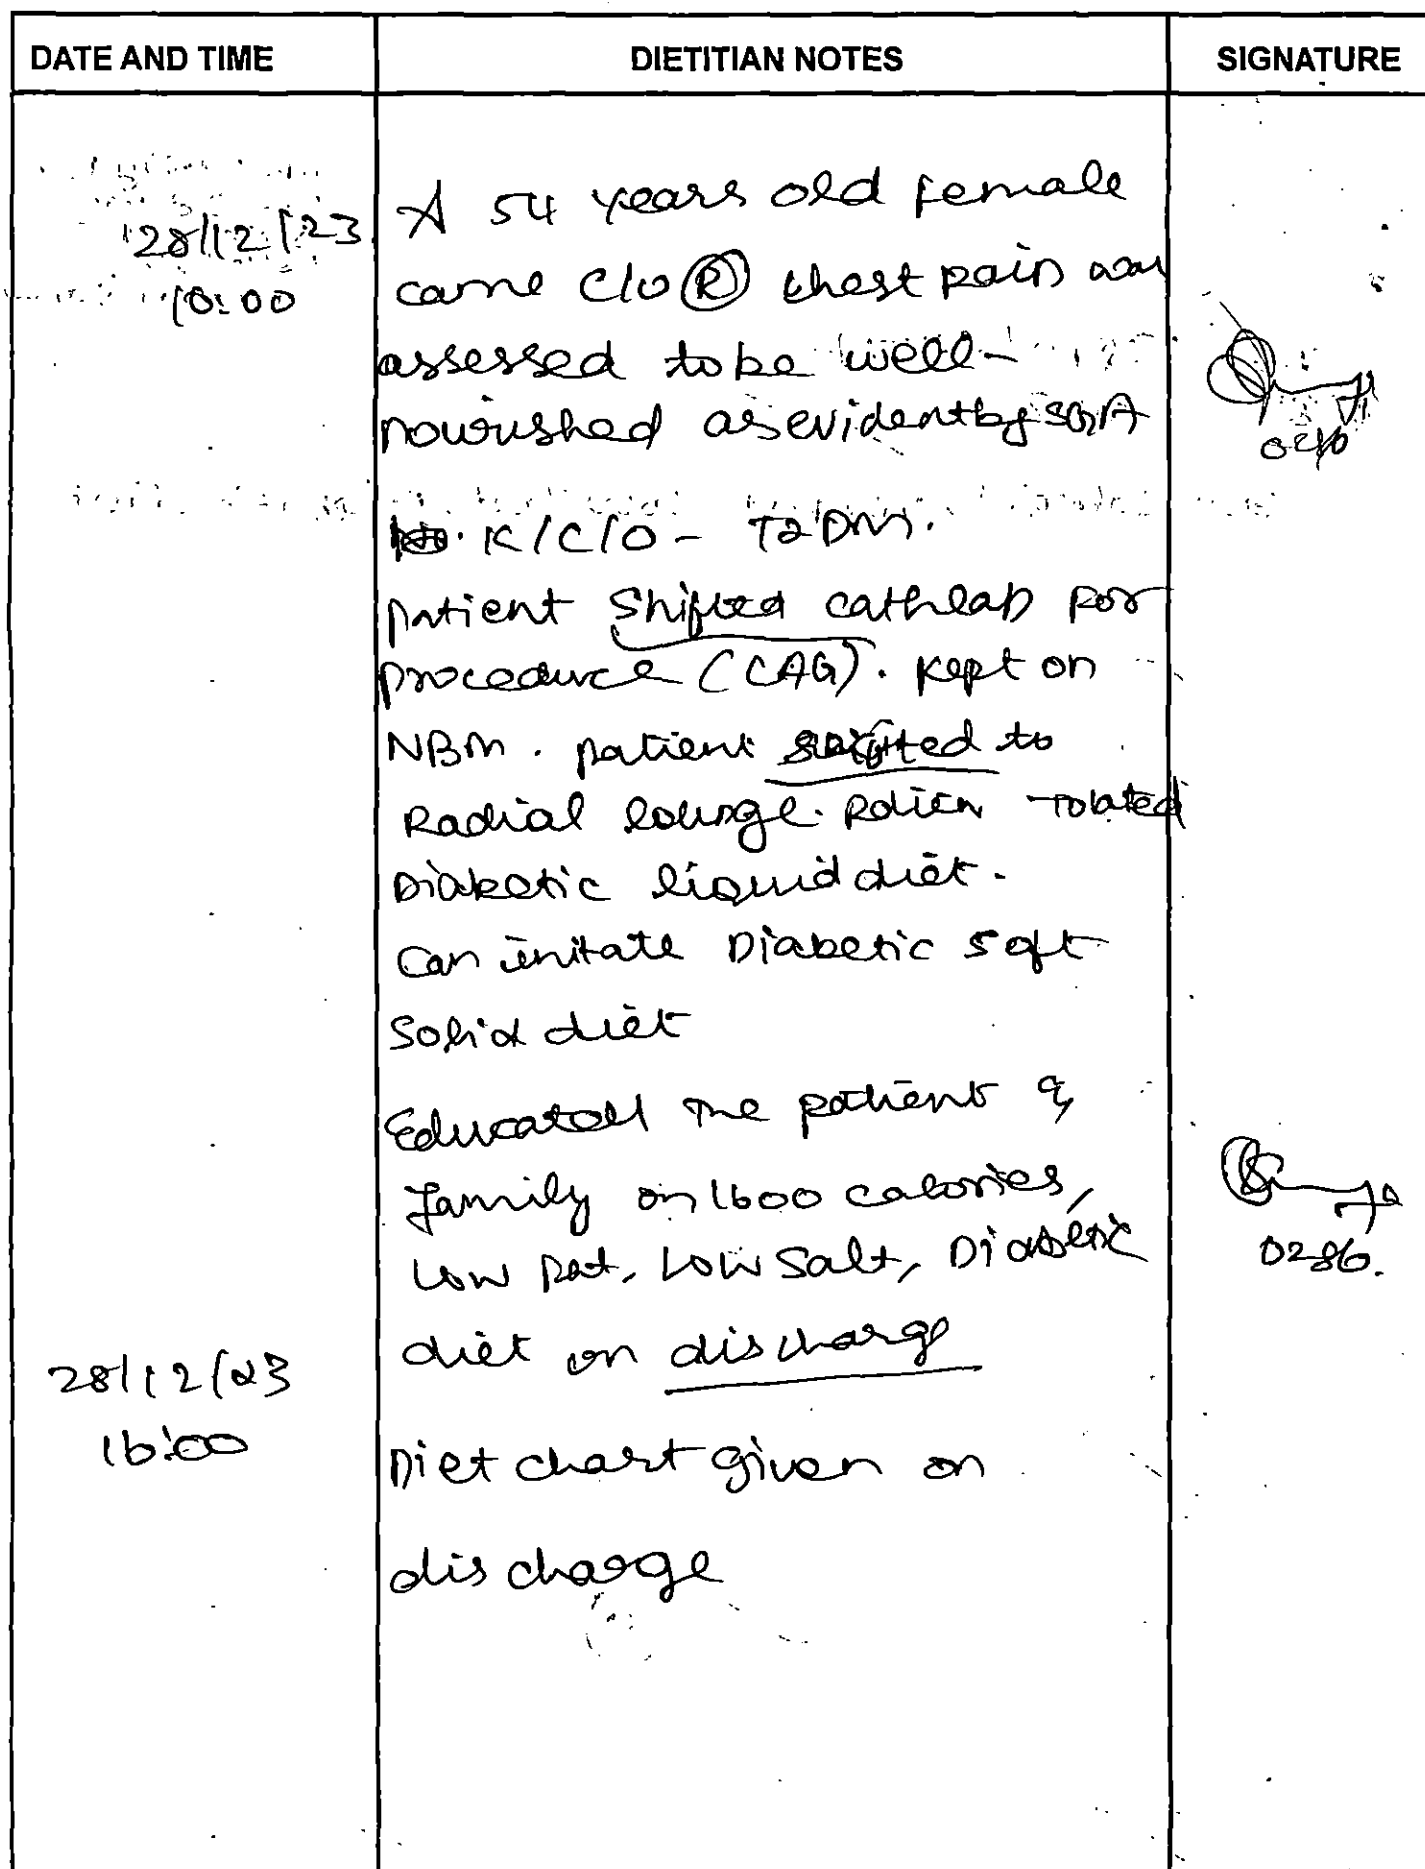 DATE AND TIME DIETITIAN NOTES SIGNATURE
28/12/23 A 54 years old female
10:00 came c/o (R) chest pain was
assessed to be well-
nourished as evident by SGA
K/C/O - T2DM.
patient Shifted cathlab for
procedure (CAG). Kept on
NBM. patient shifted to
Radial lounge.
Diabetic liquid diet.
Can initate Diabetic soft
Solid diet
Educated the patient &
family on 1600 calories,
Low fat, Low Salt, Diabetic
0286.
diet on discharge
28/12/23
16:00
Diet chart given on
discharge